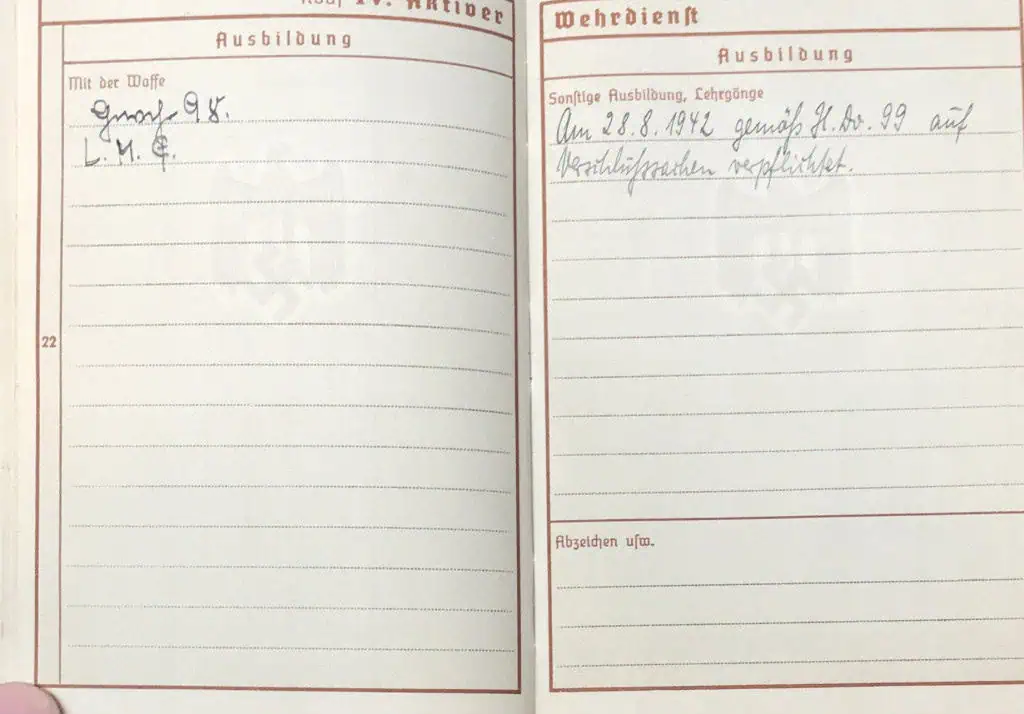 IV. Aktiver
Ausbildung
Mit der Waffe
Gew. 98.
L. M. G.
22
Wehrdienst
Ausbildung
Sonstige Ausbildung, Lehrgänge
Am 28.8.1942 gemäß H.Dv. 99 auf
Verschlußsachen verpflichtet.
Abzeichen usw.